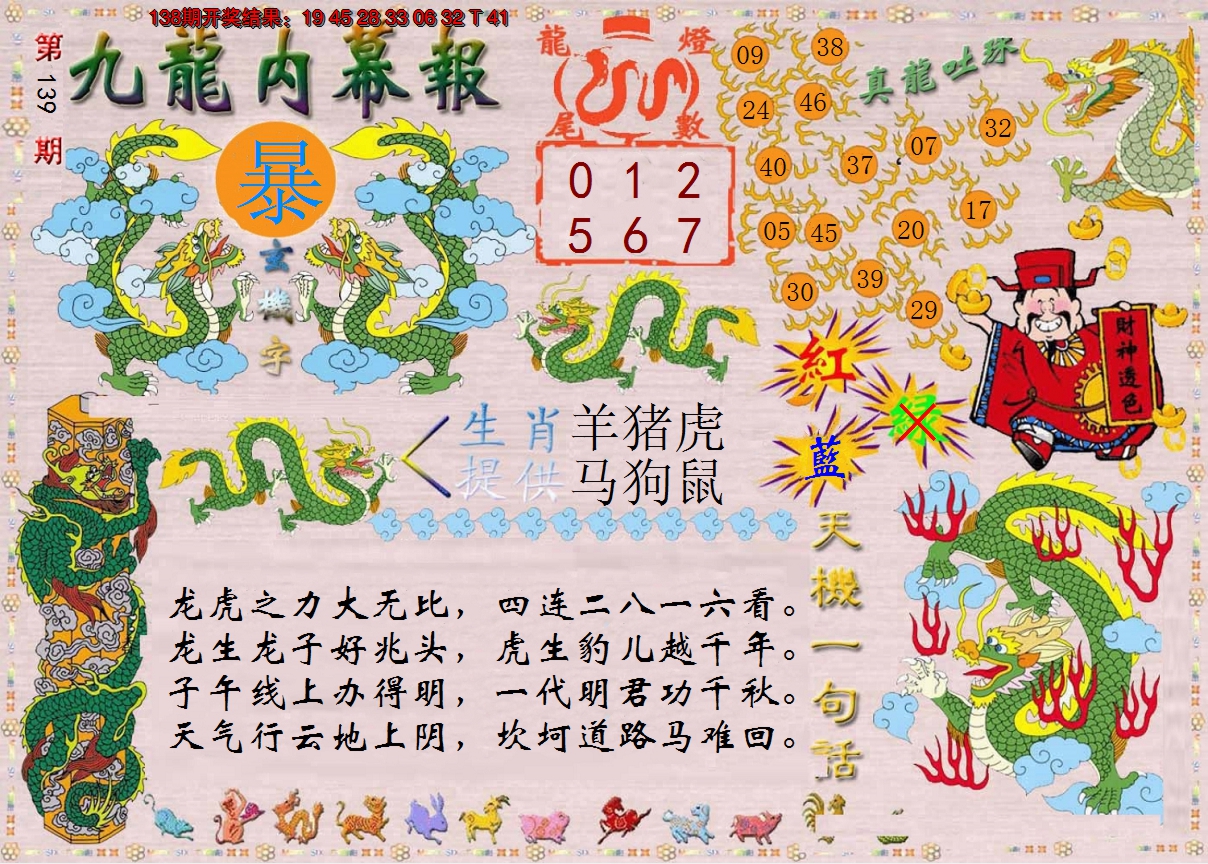 138期开奖结果：19 45 28 33 06 32 T 41
第139期
九龍内幕報
暴
玄機字
龍燈
尾數
0 1 2
5 6 7
真龍吐珠
09 38
24 46
40 37 07 32
05 45 20 17
30 39 29
財神透色
紅
绿
藍
生肖提供
羊猪虎
马狗鼠
天機一句話
龙虎之力大无比，四连二八一六看。
龙生龙子好兆头，虎生豹儿越千年。
子午线上办得明，一代明君功千秋。
天气行云地上阴，坎坷道路马难回。